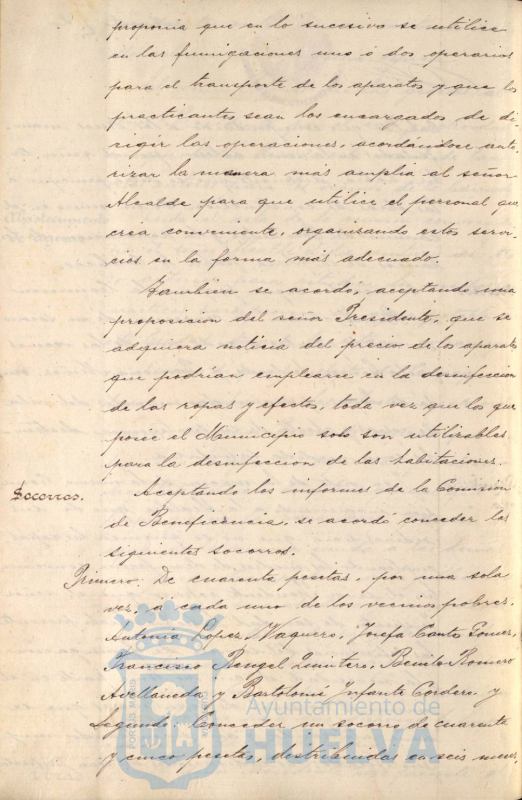 proponia que en lo sucesivo se utilice
en las fumigaciones uno ó dos operarios
para el transporte de los aparatos y que los
practicantes sean los encargados de di-
rigir las operaciones, acordándose auto-
rizar la manera más amplia al señor
Alcalde para que utilice el personal que
crea conveniente, organizando estos servi-
cios en la forma más adecuado.
Tambien se acordó, aceptando una
proposicion del señor Presidente, que se
adquiera noticia del precio de los aparatos
que podrían emplearse en la desinfeccion
de las ropas y efectos, toda vez que los que
posee el Municipio solo son utilizables
para la desinfeccion de las habitaciones.
Socorros.
Aceptando los informes de la Comision
de Beneficencia, se acordó conceder los
siguientes socorros.
Primero: De cuarenta pesetas, por una sola
vez, á cada uno de los vecinos pobres,
Antonia Lopez Vaquero, Josefa Canto Gomez,
Francisco Rengel Quintero, Benito Romero
Avellaneda y Bartolomé Infante Cordero y
Segundo: Conceder un socorro de cuarenta
y cinco pesetas, distribuidas en seis meses,
Ayuntamiento de
HUELVA